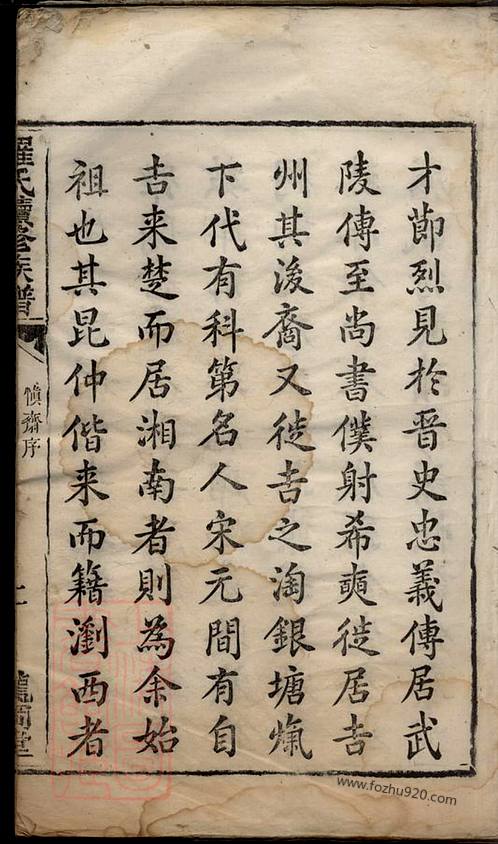 才節烈見於晉史忠義傳居武
陵傳至尚書僕射希奭徙居吉
州其後裔又徙吉之淘銀塘
下代有科第名人宋元間有自
吉来楚而居湘南者則為余始
祖也其昆仲偕来而籍瀏西者
羅氏續修族譜
慎齋序
www.fozhu920.com